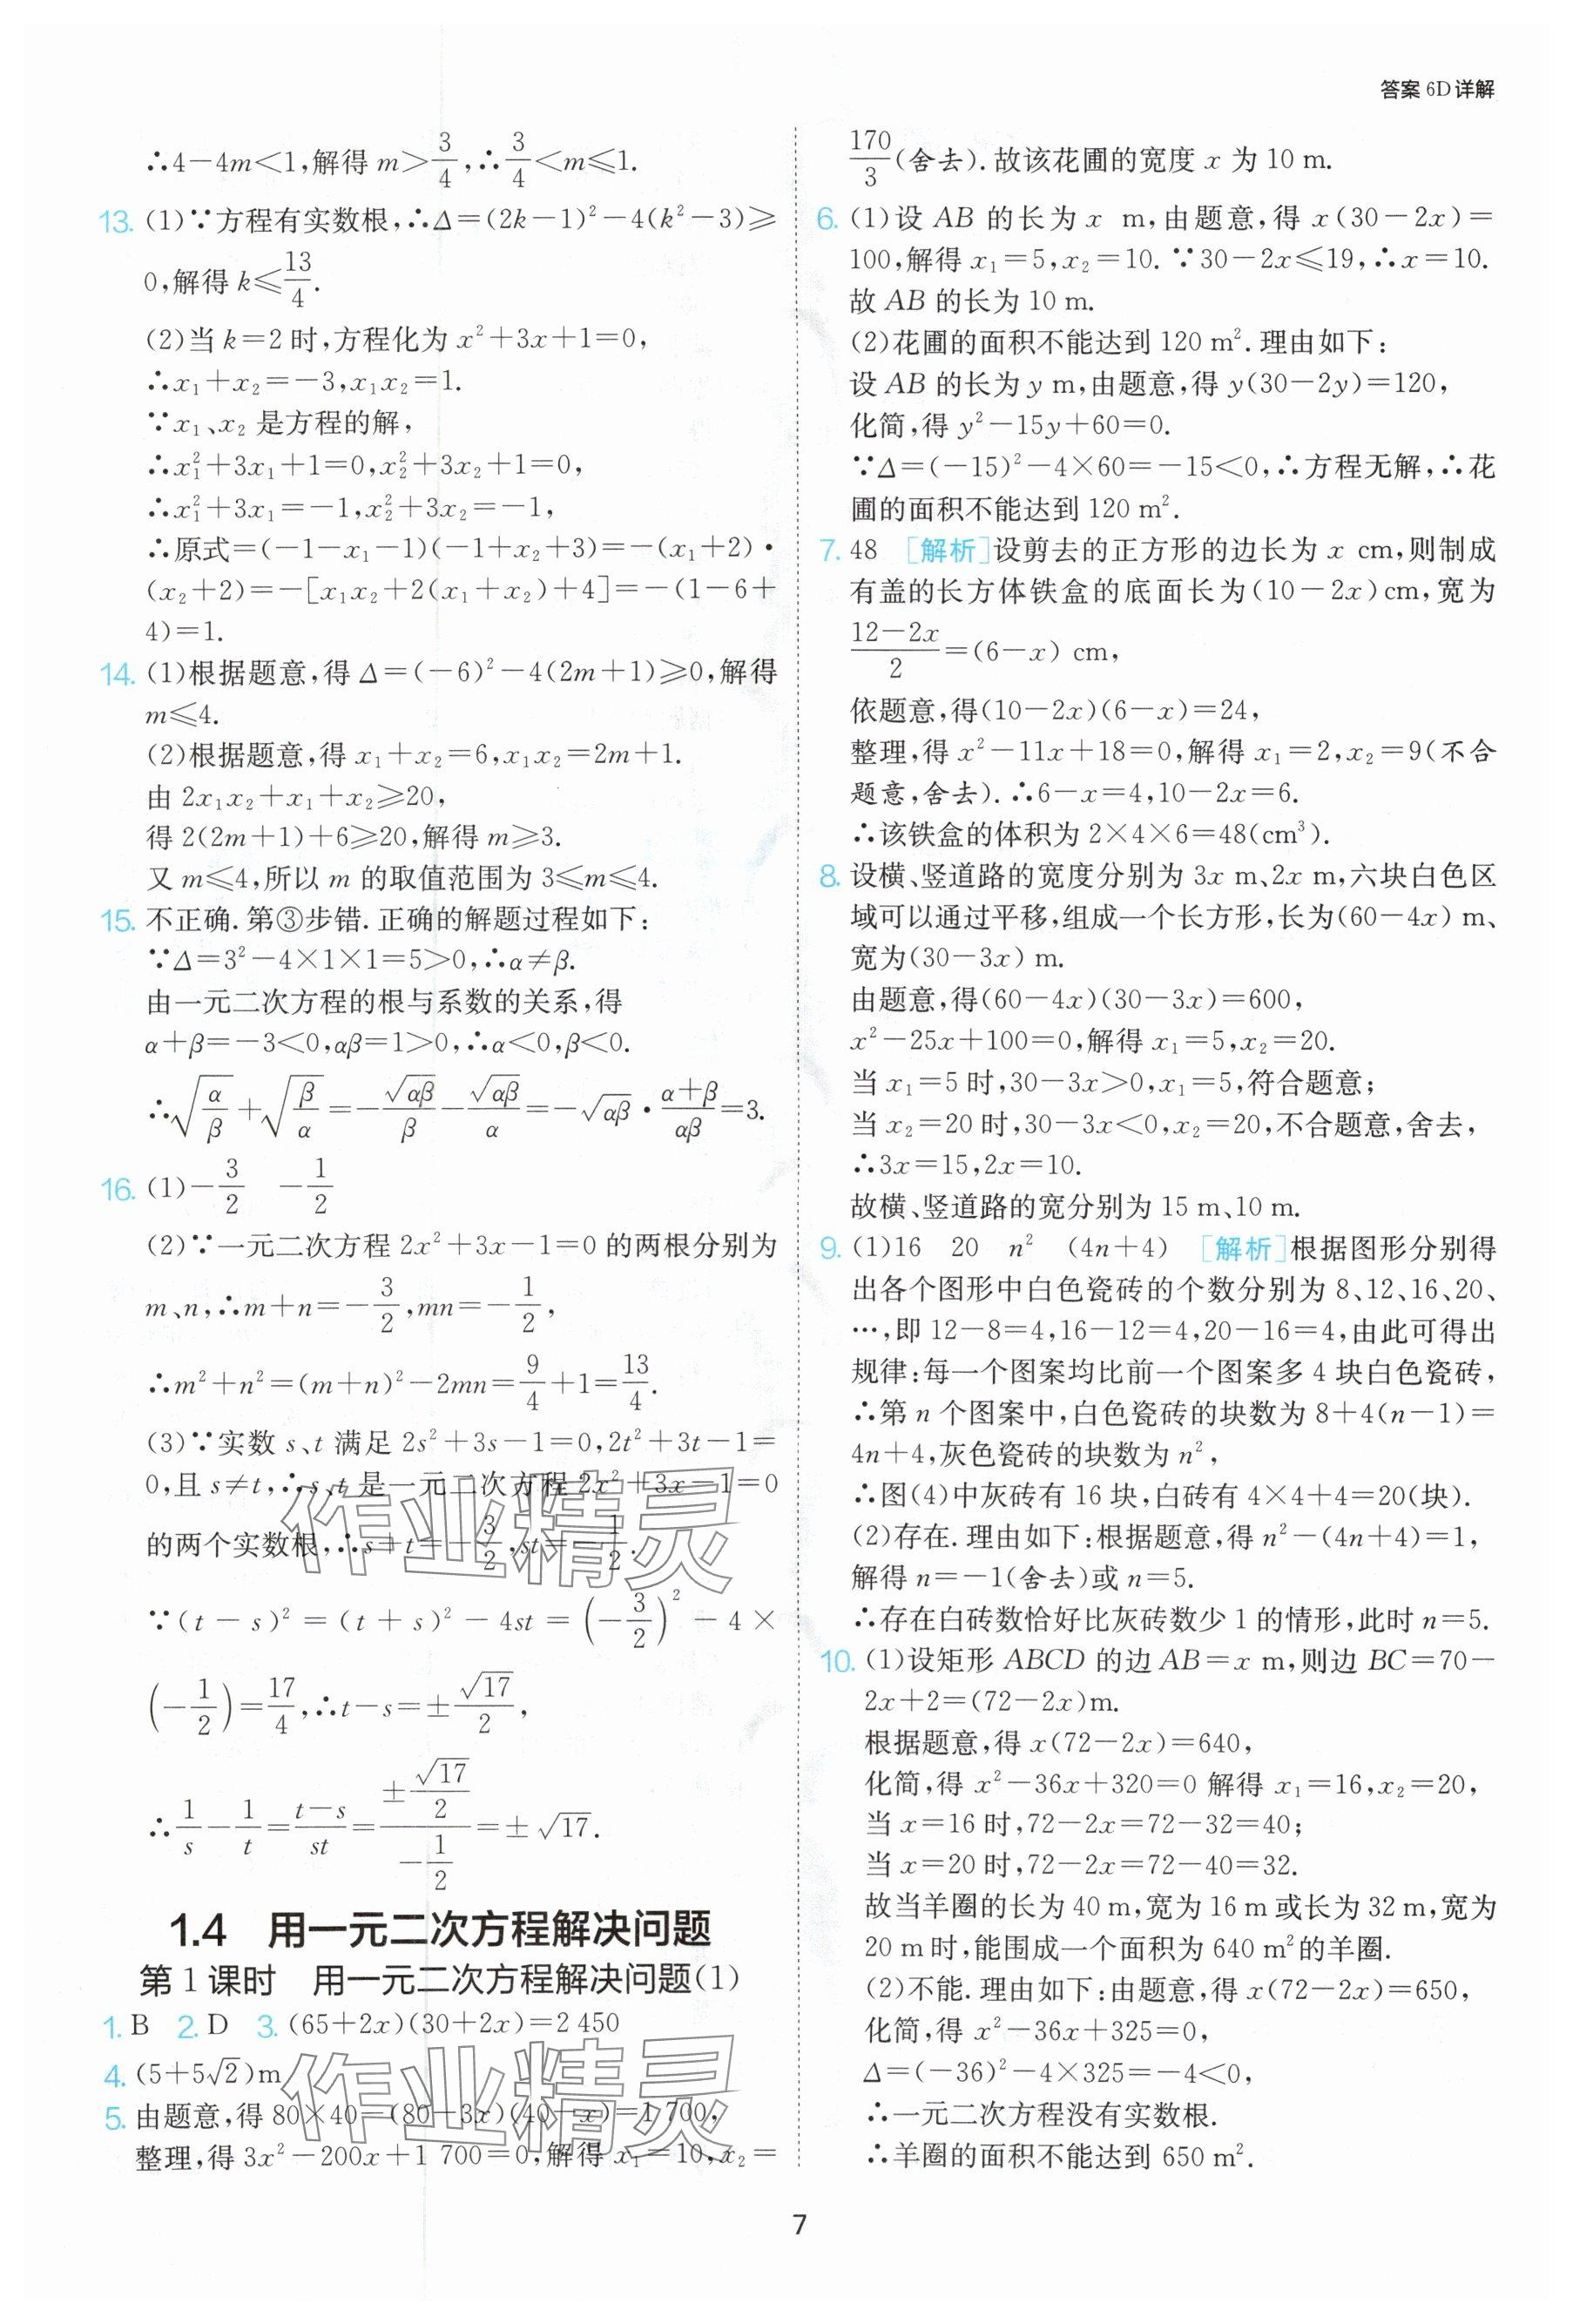 答案 6D详解
∴4－4m＜1,解得 m＞3/4,∴3/4＜m≤1.
13. (1)∵方程有实数根,∴Δ＝(2k－1)²－4(k²－3)≥
0,解得 k≤13/4.
(2)当 k＝2 时,方程化为 x²＋3x＋1＝0,
∴x₁＋x₂＝－3,x₁x₂＝1.
∵x₁、x₂ 是方程的解,
∴x₁²＋3x₁＋1＝0,x₂²＋3x₂＋1＝0,
∴x₁²＋3x₁＝－1,x₂²＋3x₂＝－1,
∴原式＝(－1－x₁－1)(－1＋x₂＋3)＝－(x₁＋2)·
(x₂＋2)＝－[x₁x₂＋2(x₁＋x₂)＋4]＝－(1－6＋
4)＝1.
14. (1)根据题意,得 Δ＝(－6)²－4(2m＋1)≥0,解得
m≤4.
(2)根据题意,得 x₁＋x₂＝6,x₁x₂＝2m＋1.
由 2x₁x₂＋x₁＋x₂≥20,
得 2(2m＋1)＋6≥20,解得 m≥3.
又 m≤4,所以 m 的取值范围为 3≤m≤4.
15. 不正确. 第③步错. 正确的解题过程如下:
∵Δ＝3²－4×1×1＝5＞0,∴α≠β.
由一元二次方程的根与系数的关系,得
α＋β＝－3＜0,αβ＝1＞0,∴α＜0,β＜0.
∴√(α/β)＋√(β/α)＝－√(αβ)/β－√(αβ)/α＝－√(αβ)·(α＋β)/(αβ)＝3.
16. (1)－3/2 －1/2
(2)∵一元二次方程 2x²＋3x－1＝0 的两根分别为
m、n,∴m＋n＝－3/2,mn＝－1/2,
∴m²＋n²＝(m＋n)²－2mn＝9/4＋1＝13/4.
(3)∵实数 s、t 满足 2s²＋3s－1＝0,2t²＋3t－1＝
0,且 s≠t,∴s、t 是一元二次方程 2x²＋3x－1＝0
的两个实数根,∴s＋t＝－3/2,st＝－1/2.
∵(t－s)²＝(t＋s)²－4st＝(－3/2)²－4×
(－1/2)＝17/4,∴t－s＝±√17/2,
∴1/s－1/t＝(t－s)/st＝(±√17/2)/(－1/2)＝±√17.
1.4 用一元二次方程解决问题
第 1 课时 用一元二次方程解决问题(1)
1. B 2. D 3. (65＋2x)(30＋2x)＝2 450
4. (5＋5√2)m
5. 由题意,得 80×40－(80－3x)(40－x)＝1 700,
整理,得 3x²－200x＋1 700＝0,解得 x₁＝10,x₂＝
170/3(舍去). 故该花圃的宽度 x 为 10 m.
6. (1)设 AB 的长为 x m,由题意,得 x(30－2x)＝
100,解得 x₁＝5,x₂＝10. ∵30－2x≤19,∴x＝10.
故 AB 的长为 10 m.
(2)花圃的面积不能达到 120 m². 理由如下:
设 AB 的长为 y m,由题意,得 y(30－2y)＝120,
化简,得 y²－15y＋60＝0.
∵Δ＝(－15)²－4×60＝－15＜0,∴方程无解,∴花
圃的面积不能达到 120 m².
7. 48 [解析]设剪去的正方形的边长为 x cm,则制成
有盖的长方体铁盒的底面长为(10－2x)cm,宽为
(12－2x)/2＝(6－x) cm,
依题意,得(10－2x)(6－x)＝24,
整理,得 x²－11x＋18＝0,解得 x₁＝2,x₂＝9(不合
题意,舍去). ∴6－x＝4,10－2x＝6.
∴该铁盒的体积为 2×4×6＝48(cm³).
8. 设横、竖道路的宽度分别为 3x m、2x m,六块白色区
域可以通过平移,组成一个长方形,长为(60－4x) m、
宽为(30－3x) m.
由题意,得(60－4x)(30－3x)＝600,
x²－25x＋100＝0,解得 x₁＝5,x₂＝20.
当 x₁＝5 时,30－3x＞0,x₁＝5,符合题意;
当 x₂＝20 时,30－3x＜0,x₂＝20,不合题意,舍去,
∴3x＝15,2x＝10.
故横、竖道路的宽分别为 15 m、10 m.
9. (1)16 20 n² (4n＋4) [解析]根据图形分别得
出各个图形中白色瓷砖的个数分别为 8、12、16、20、
…,即 12－8＝4,16－12＝4,20－16＝4,由此可得出
规律:每一个图案均比前一个图案多 4 块白色瓷砖,
∴第 n 个图案中,白色瓷砖的块数为 8＋4(n－1)＝
4n＋4,灰色瓷砖的块数为 n²,
∴图(4)中灰砖有 16 块,白砖有 4×4＋4＝20(块).
(2)存在. 理由如下:根据题意,得 n²－(4n＋4)＝1,
解得 n＝－1(舍去)或 n＝5.
∴存在白砖数恰好比灰砖数少 1 的情形,此时 n＝5.
10. (1)设矩形 ABCD 的边 AB＝x m,则边 BC＝70－
2x＋2＝(72－2x)m.
根据题意,得 x(72－2x)＝640,
化简,得 x²－36x＋320＝0 解得 x₁＝16,x₂＝20,
当 x＝16 时,72－2x＝72－32＝40;
当 x＝20 时,72－2x＝72－40＝32.
故当羊圈的长为 40 m,宽为 16 m 或长为 32 m,宽为
20 m 时,能围成一个面积为 640 m²的羊圈.
(2)不能. 理由如下:由题意,得 x(72－2x)＝650,
化简,得 x²－36x＋325＝0,
Δ＝(－36)²－4×325＝－4＜0,
∴一元二次方程没有实数根.
∴羊圈的面积不能达到 650 m².
作业精灵
作业精灵
7